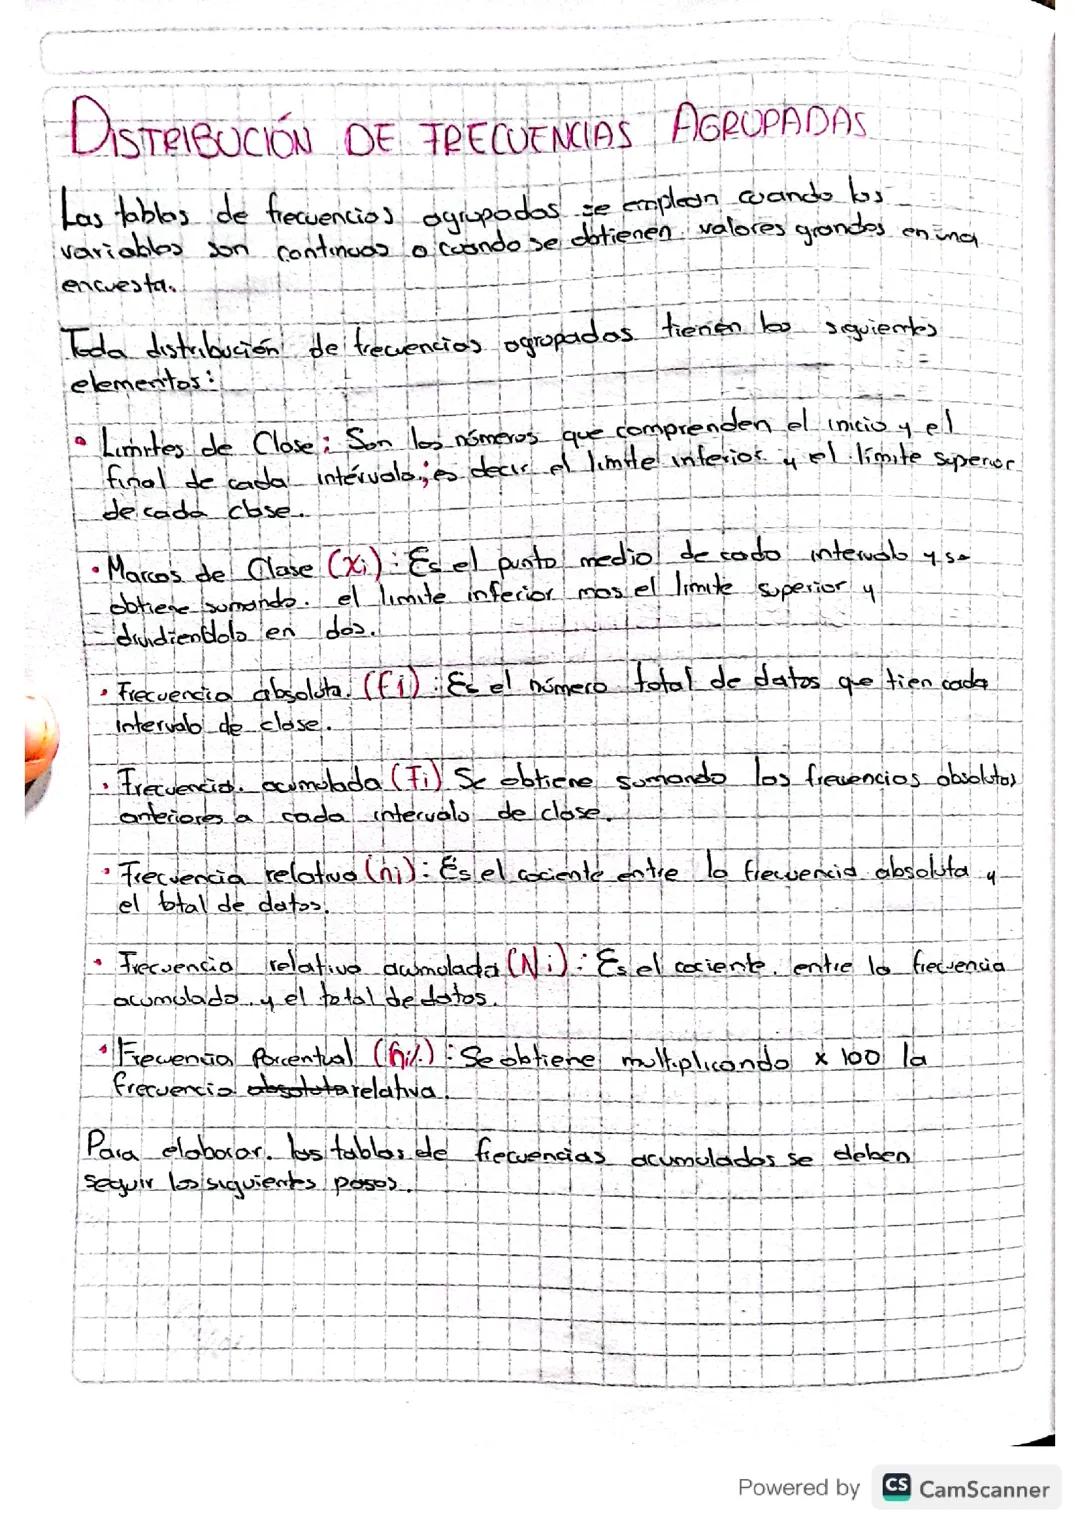 DISTRIBUCIÓN DE FRECUENCIAS AGRUPADAS
Las tablas de frecuencias agrupadas se emplean cuando las
variables son continuas o cuando se obtienen valores grandes en una
encuesta.
Toda distribución de frecuencias agropadas tienen los siguientes
elementos:
• Limites de Clase: Son los números que comprenden el inicio y el
final de cada intérvalo; es decir el limite inferior y el límite superior
de cada clase.
• Marcas de Clase (Xi): Es el punto medio de cada intervalo y se
obtiene sumando el limite inferior mas el limite superior y
dividiendolo en dos.
• Frecuencia absoluta (fi): Es el número total de datos que tien cada
intervalo de clase.
• Frecuencia acumulada (Fi) Se obtiene sumando las frecuencias absolutas
anteriores a cada intervalo de clase.
• Frecuencia relativa (ni): Es el cociente entre la frecuencia absoluta y
el total de datos.
• Frecuencia relativa acumulada (Ni): Es el cociente entre la frecuencia
acumulada y el total de datos.
• Frecuencia porcentual (hi%): Se obtiene multiplicando x 100 la
frecuencia absoluta relativa.
Para elaborar las tablas de frecuencias acumuladas se deben
seguir los siguientes pasos.
Powered by CS CamScanner